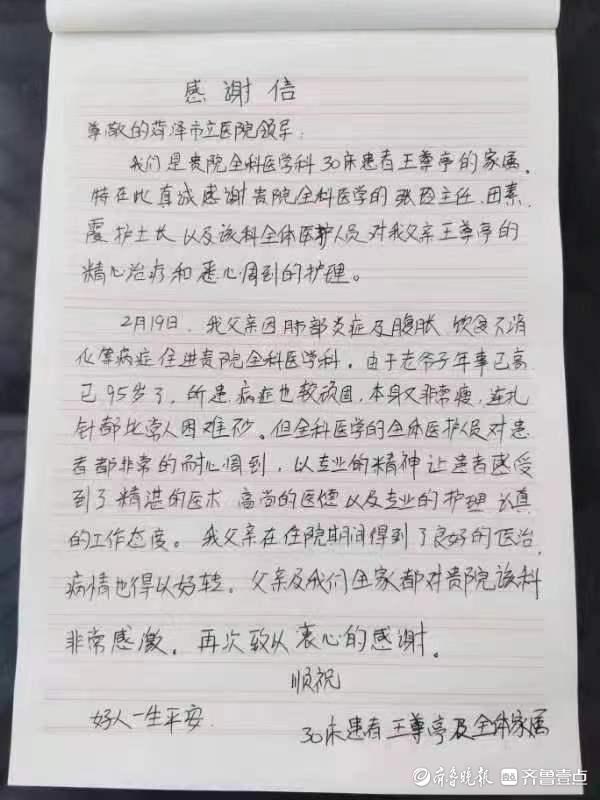 感谢信
尊敬的菏泽市立医院领导:
我们是贵院全科医学科30床患者王尊亭的家属,
特在此真诚感谢贵院全科医学的张主任、田素
霞护士长以及该科全体医护人员对我父亲王尊亭的
精心治疗和悉心周到的护理。
2月19日,我父亲因肺部炎症及腹胀、饮食不消
化等病症住进贵院全科医学科。由于老爷子年事已高
已95岁了,所患病症也较顽固,本身又非常瘦,连扎
针都比常人困难些。但全科医学的全体医护人员对患
者都非常的耐心周到,以专业的精神让患者感受
到了精湛的医术、高尚的医德以及专业的护理、认真
的工作态度。我父亲在住院期间得到了良好的医治,
病情也得以好转。父亲及我们全家都对贵院该科
非常感激。再次致以衷心的感谢。
顺祝
好人一生平安
30床患者王尊亭及全体家属
齐鲁晚报 齐鲁壹点